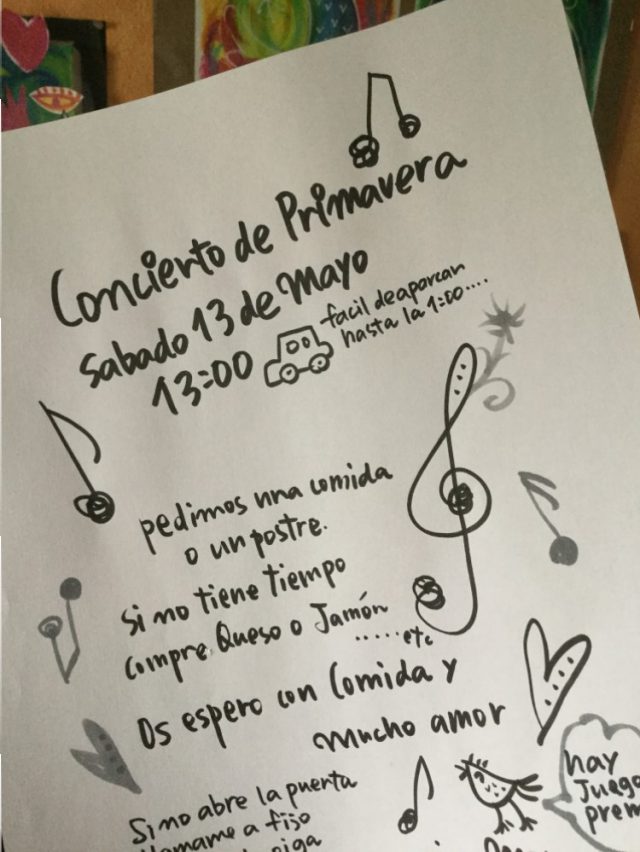 Concierto de Primavera
Sabado 13 de Mayo
13:00
facil de aparcar
hasta la 1:00....
pedimos una comida
o un postre.
Si no tiene tiempo
compre Queso o Jamón
.....etc
Os espero con Comida y
mucho amor
hay
Juego
prem
Si no abre la puerta
llamame a fijo